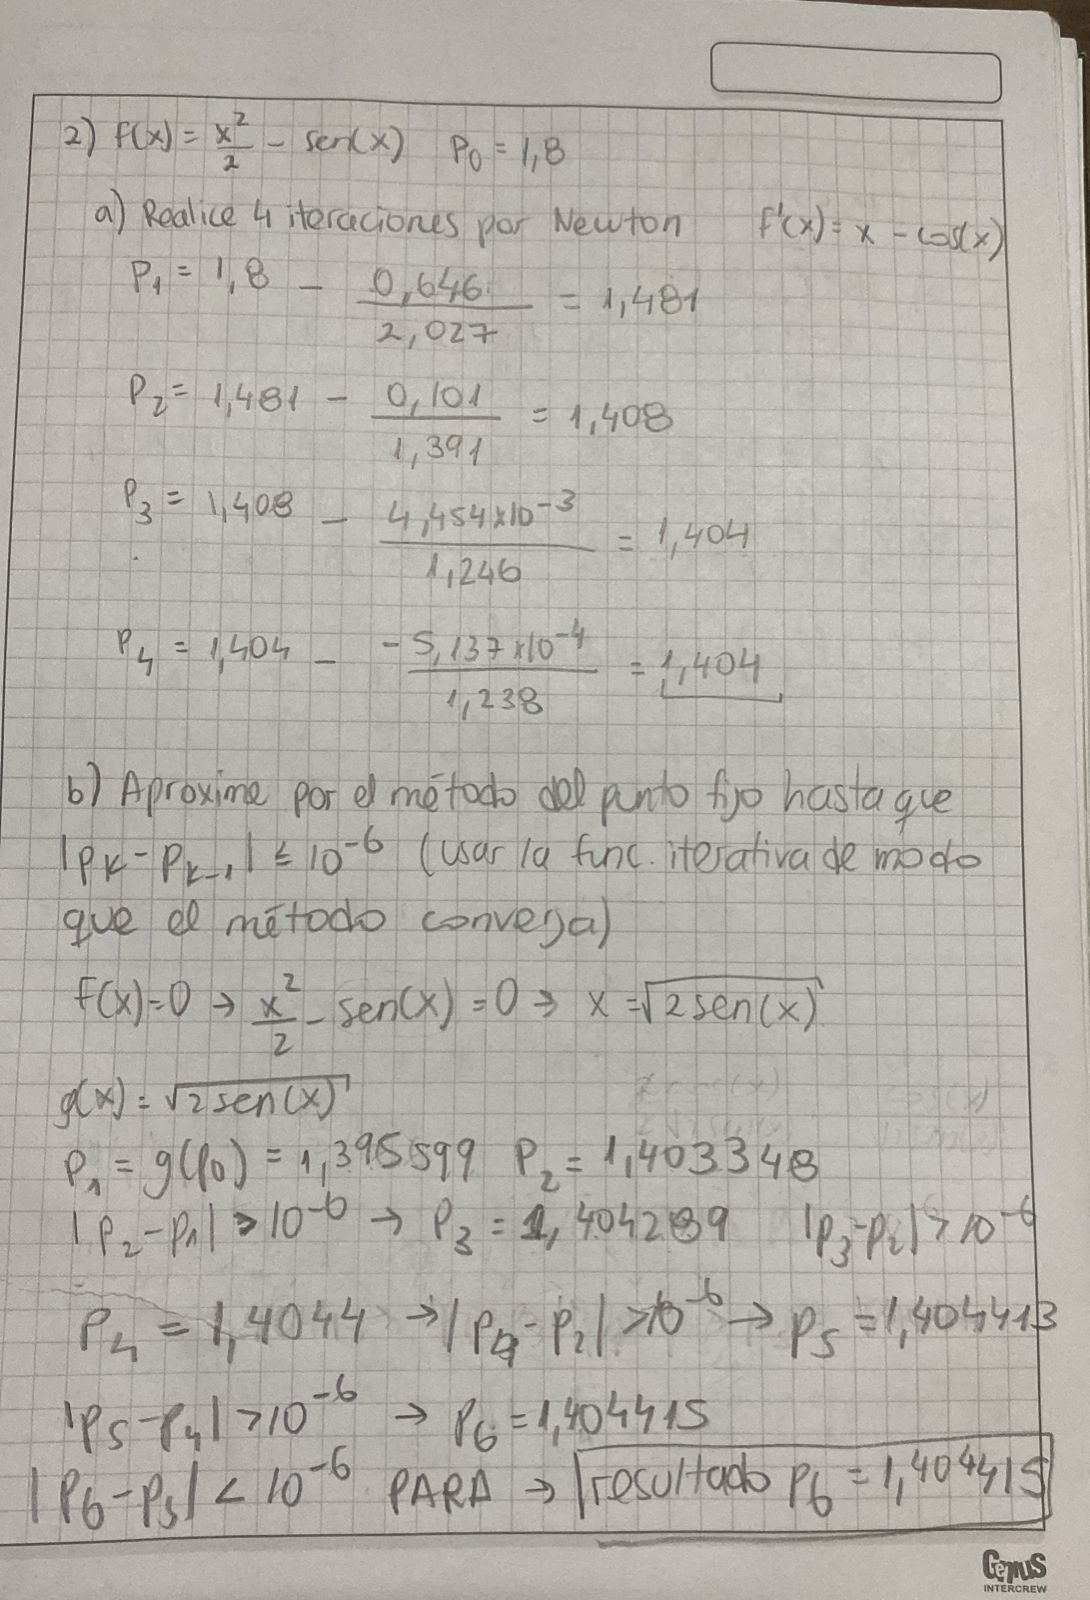 2) f(x) = x²/2 - sen(x) p₀ = 1,8
a) Realice 4 iteraciones por Newton f'(x) = x - cos(x)
P₁ = 1,8 - 0,646/2,027 = 1,481
P₂ = 1,481 - 0,101/1,391 = 1,408
P₃ = 1,408 - 4,454×10⁻³/1,246 = 1,404
P₄ = 1,404 - -5,137×10⁻⁴/1,238 = 1,404
b) Aproxime por el método del punto fijo hasta que
|pₖ - pₖ₋₁| ≤ 10⁻⁶ (usar la func. iterativa de modo
que el método converja)
f(x)=0 → x²/2 - sen(x) = 0 → x = √2sen(x)
g(x) = √2sen(x)
P₁ = g(p₀) = 1,395599 P₂ = 1,403348
|p₂ - p₁| > 10⁻⁶ → P₃ = 1,404289 |p₃ - p₂| > 10⁻⁶
P₄ = 1,4044 → |p₄ - p₂| > 10⁻⁶ → p₅ = 1,404413
|p₅ - p₄| > 10⁻⁶ → p₆ = 1,404415
|p₆ - p₅| < 10⁻⁶ PARA → resultado p₆ = 1,404415
Genius
INTERCREW